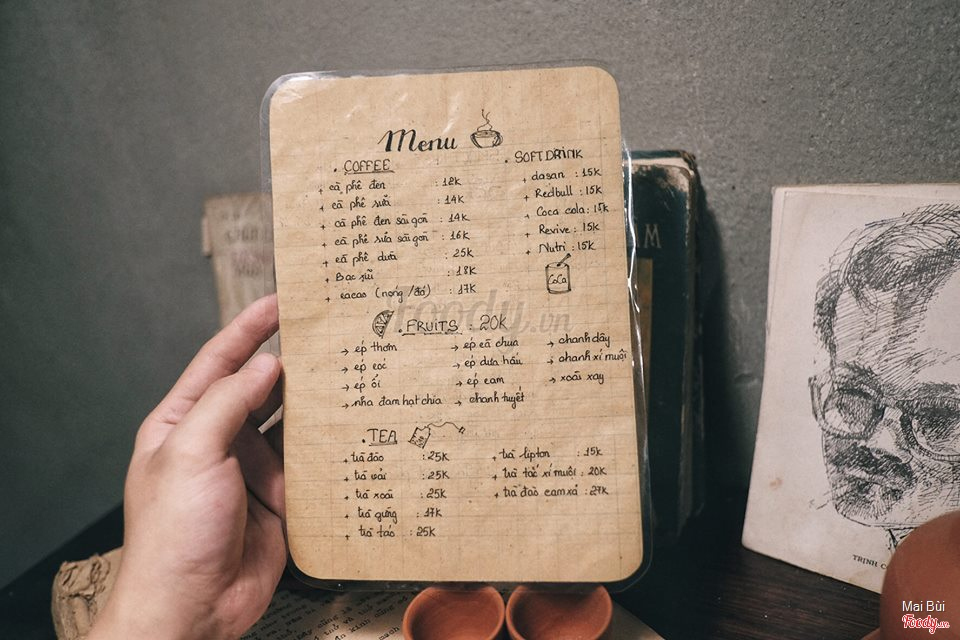 Menu
. COFFEE
+ cà phê đen : 12k
+ cà phê sữa : 14k
+ cà phê đen sài gòn : 14k
+ cà phê sữa sài gòn : 16k
+ cà phê dừa : 25k
+ Bạc sỉu : 18k
+ cacao (nóng/đá) : 17k
. SOFT DRINK
+ dasan : 15k
+ Redbull : 15k
+ Coca cola : 15k
+ Revive : 15k
+ Nutri : 15k
CoCa
. FRUITS : 20K
→ ép thơm
→ ép cóc
→ ép ổi
→ nha đam hạt chia
→ ép cà chua
→ ép dưa hấu
→ ép cam
→ chanh tuyết
→ chanh dây
→ chanh xí muội
→ xoài xay
. TEA
+ trà đào : 25k
+ trà vải : 25k
+ trà xoài : 25k
+ trà gừng : 17k
+ trà táo : 25k
+ trà lipton : 15k
+ trà tắc xí muội : 20k
+ trà đào cam xả : 27k
Foody.vn
M
TRỊNH C
Mai Bùi
Foody.vn